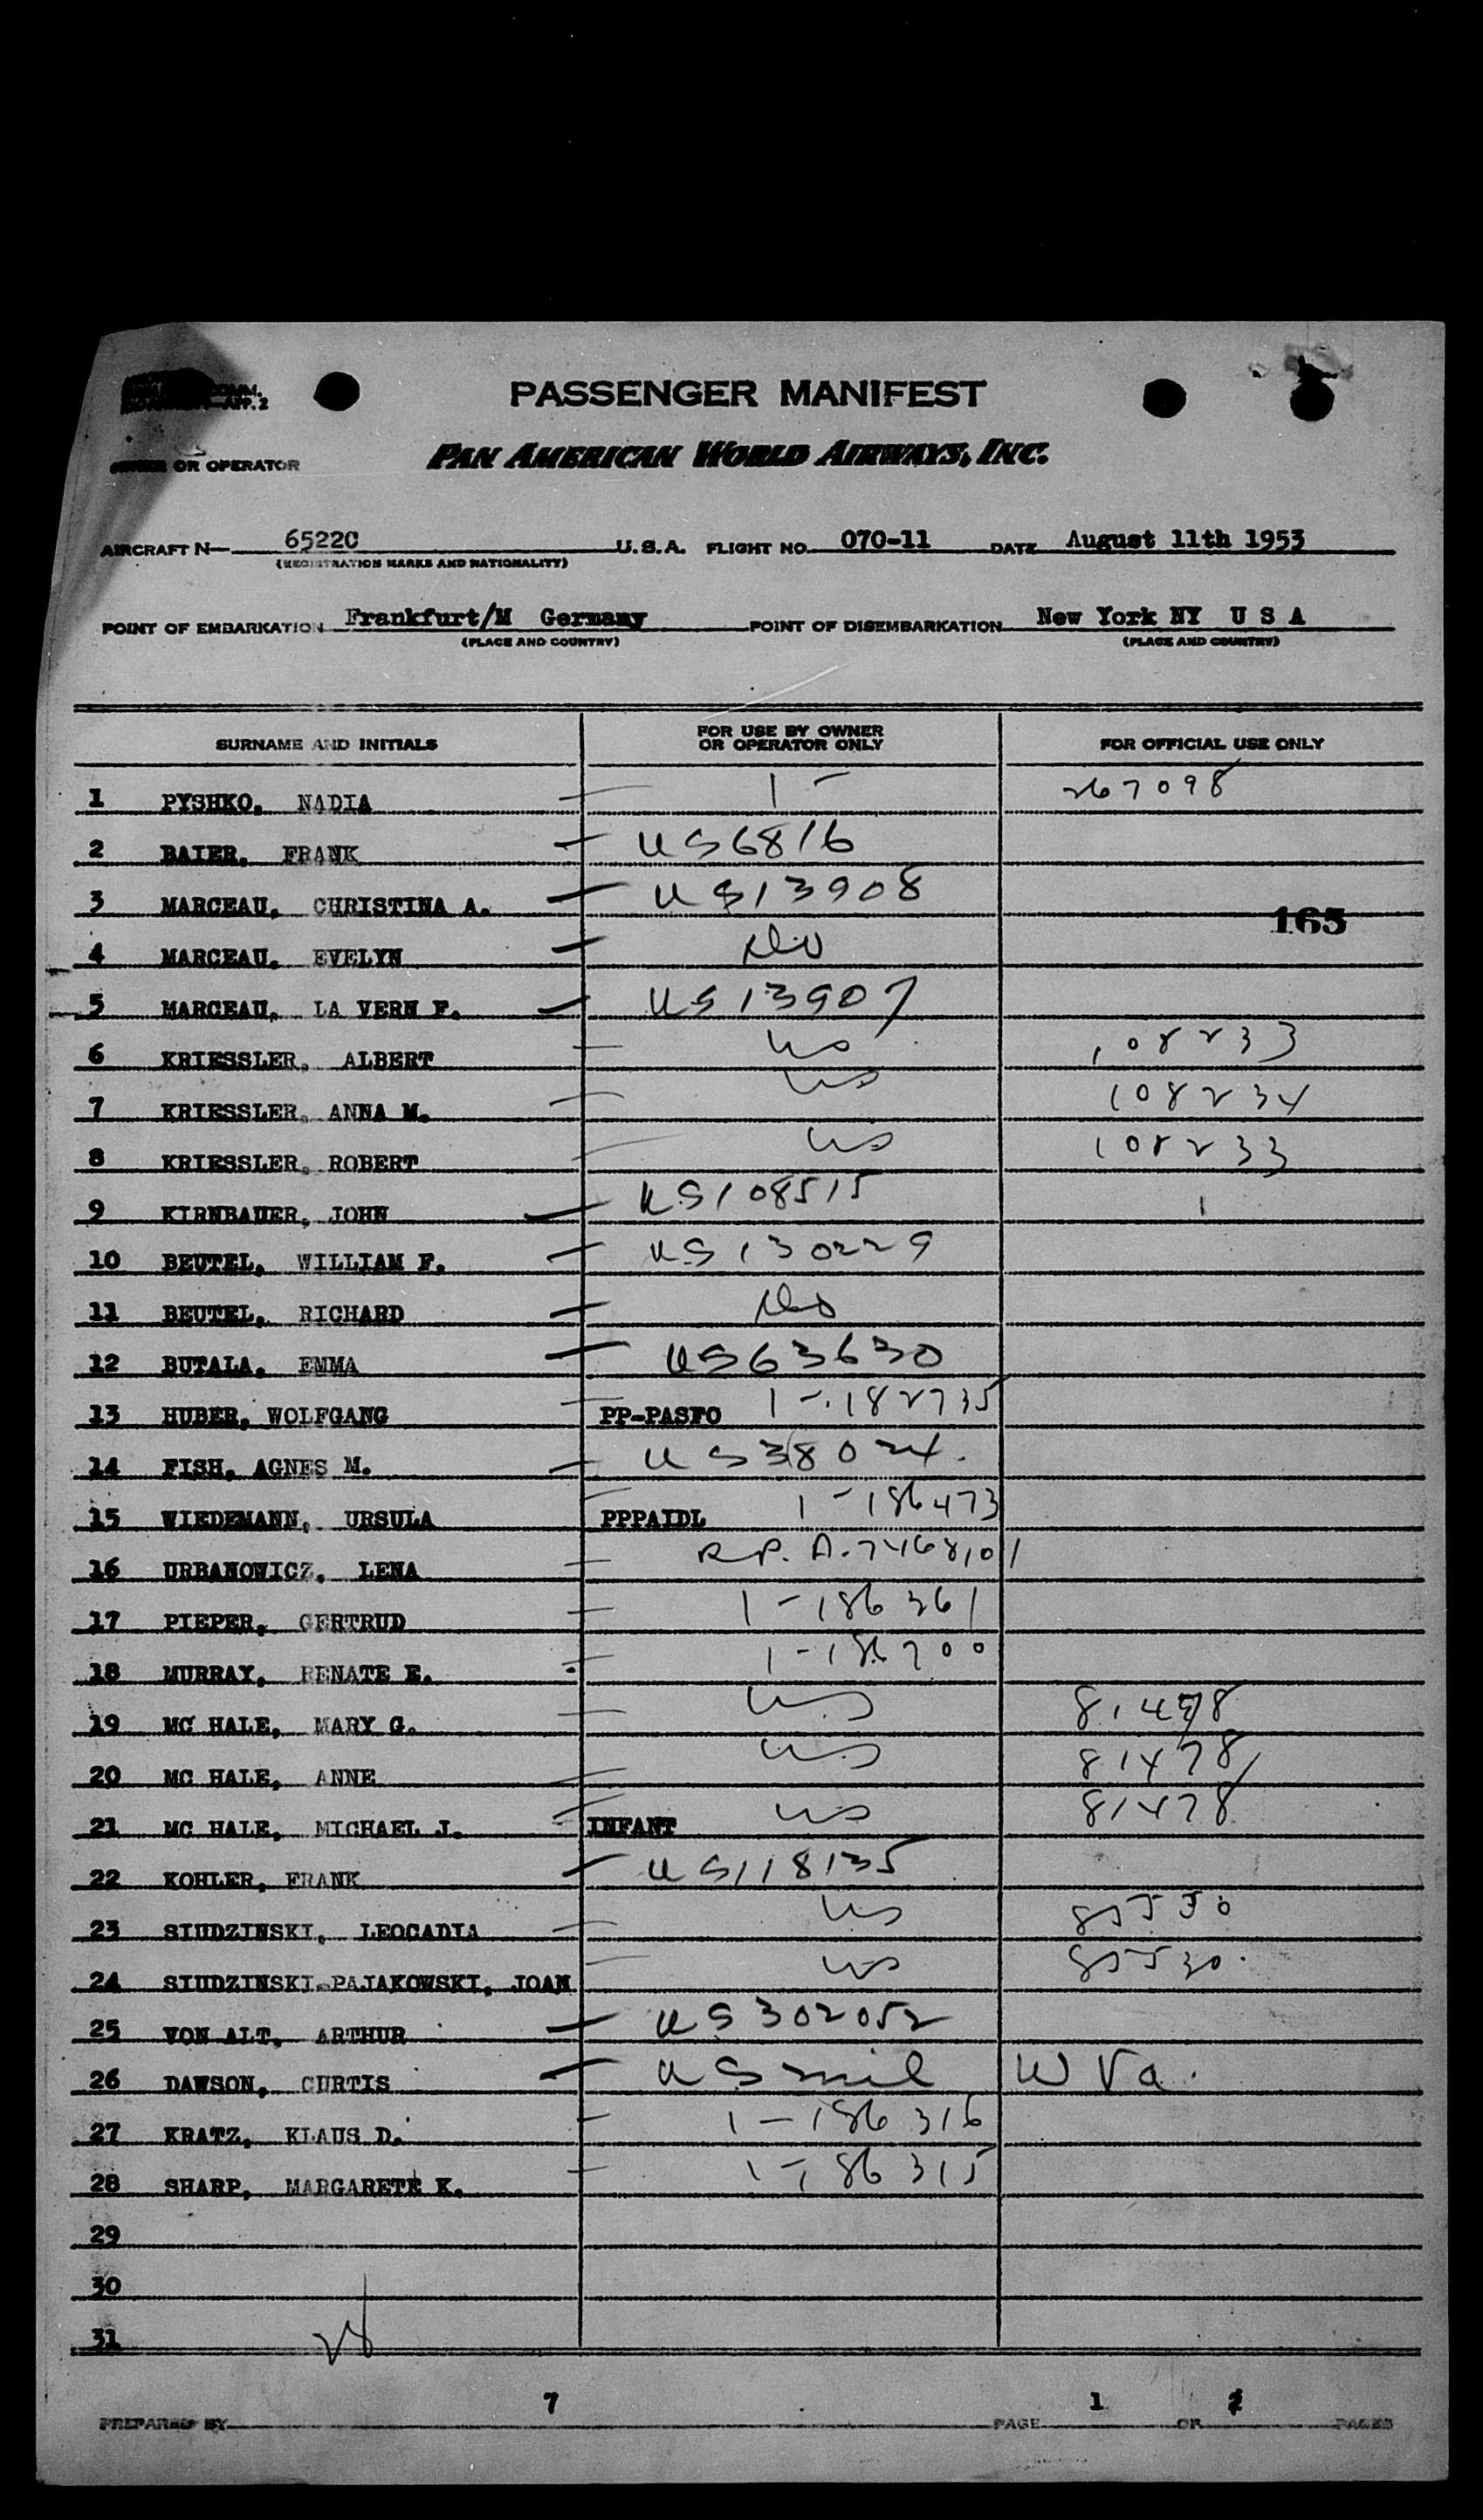 APP. 2
PASSENGER MANIFEST
OWNER OR OPERATOR PAN AMERICAN WORLD AIRWAYS, INC.
AIRCRAFT N— 6522C U.S.A. FLIGHT NO. 070-11 DATE August 11th 1953
(REGISTRATION MARKS AND NATIONALITY)
POINT OF EMBARKATION Frankfurt/M Germany POINT OF DISEMBARKATION New York NY U S A
(PLACE AND COUNTRY) (PLACE AND COUNTRY)
SURNAME AND INITIALS FOR USE BY OWNER OR OPERATOR ONLY FOR OFFICIAL USE ONLY
1 PYSHKO, NADIA 1 - 267098
2 BAIER, FRANK US6816
3 MARCEAU, CHRISTINA A. US13908
165
4 MARCEAU, EVELYN Do
5 MARCEAU, LA VERN F. US13907
6 KRIESSLER, ALBERT US 108233
7 KRIESSLER, ANNA M. US 108234
8 KRIESSLER, ROBERT US 108233
9 KIRNBAUER, JOHN US108515 1
10 BEUTEL, WILLIAM F. US130229
11 BEUTEL, RICHARD Do
12 BUTALA, EMMA US63630
13 HUBER, WOLFGANG PP-PASFO 1-182735
14 FISH, AGNES M. US38024.
15 WIEDEMANN, URSULA PPPAIDL 1-186473
16 URBANOWICZ, LENA R.P. A.7468101
17 PIEPER, GERTRUD 1-186361
18 MURRAY, RENATE E. 1-186200
19 MC HALE, MARY G. US 81478
20 MC HALE, ANNE US 81478
21 MC HALE, MICHAEL J. INFANT US 81478
22 KOHLER, FRANK US118135
23 SIUDZINSKI, LEOCADIA US 85530
24 SIUDZINSKI-PAJAKOWSKI, JOAN US 85530.
25 VON ALT, ARTHUR US302052
26 DAWSON, CURTIS US mil W Va.
27 KRATZ, KLAUS D. 1-186316
28 SHARP, MARGARETE K. 1-186315
29
30
31 28
7 1 2
PREPARED BY PAGE OF PAGES